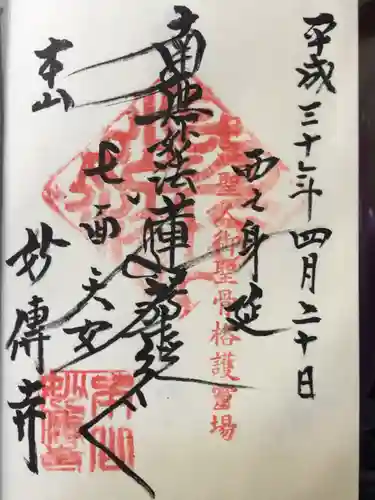 平成三十年四月二十日
西之身延
日蓮聖人御聖骨格護霊場
南無妙法蓮華経
七面天女
本山
妙傳寺